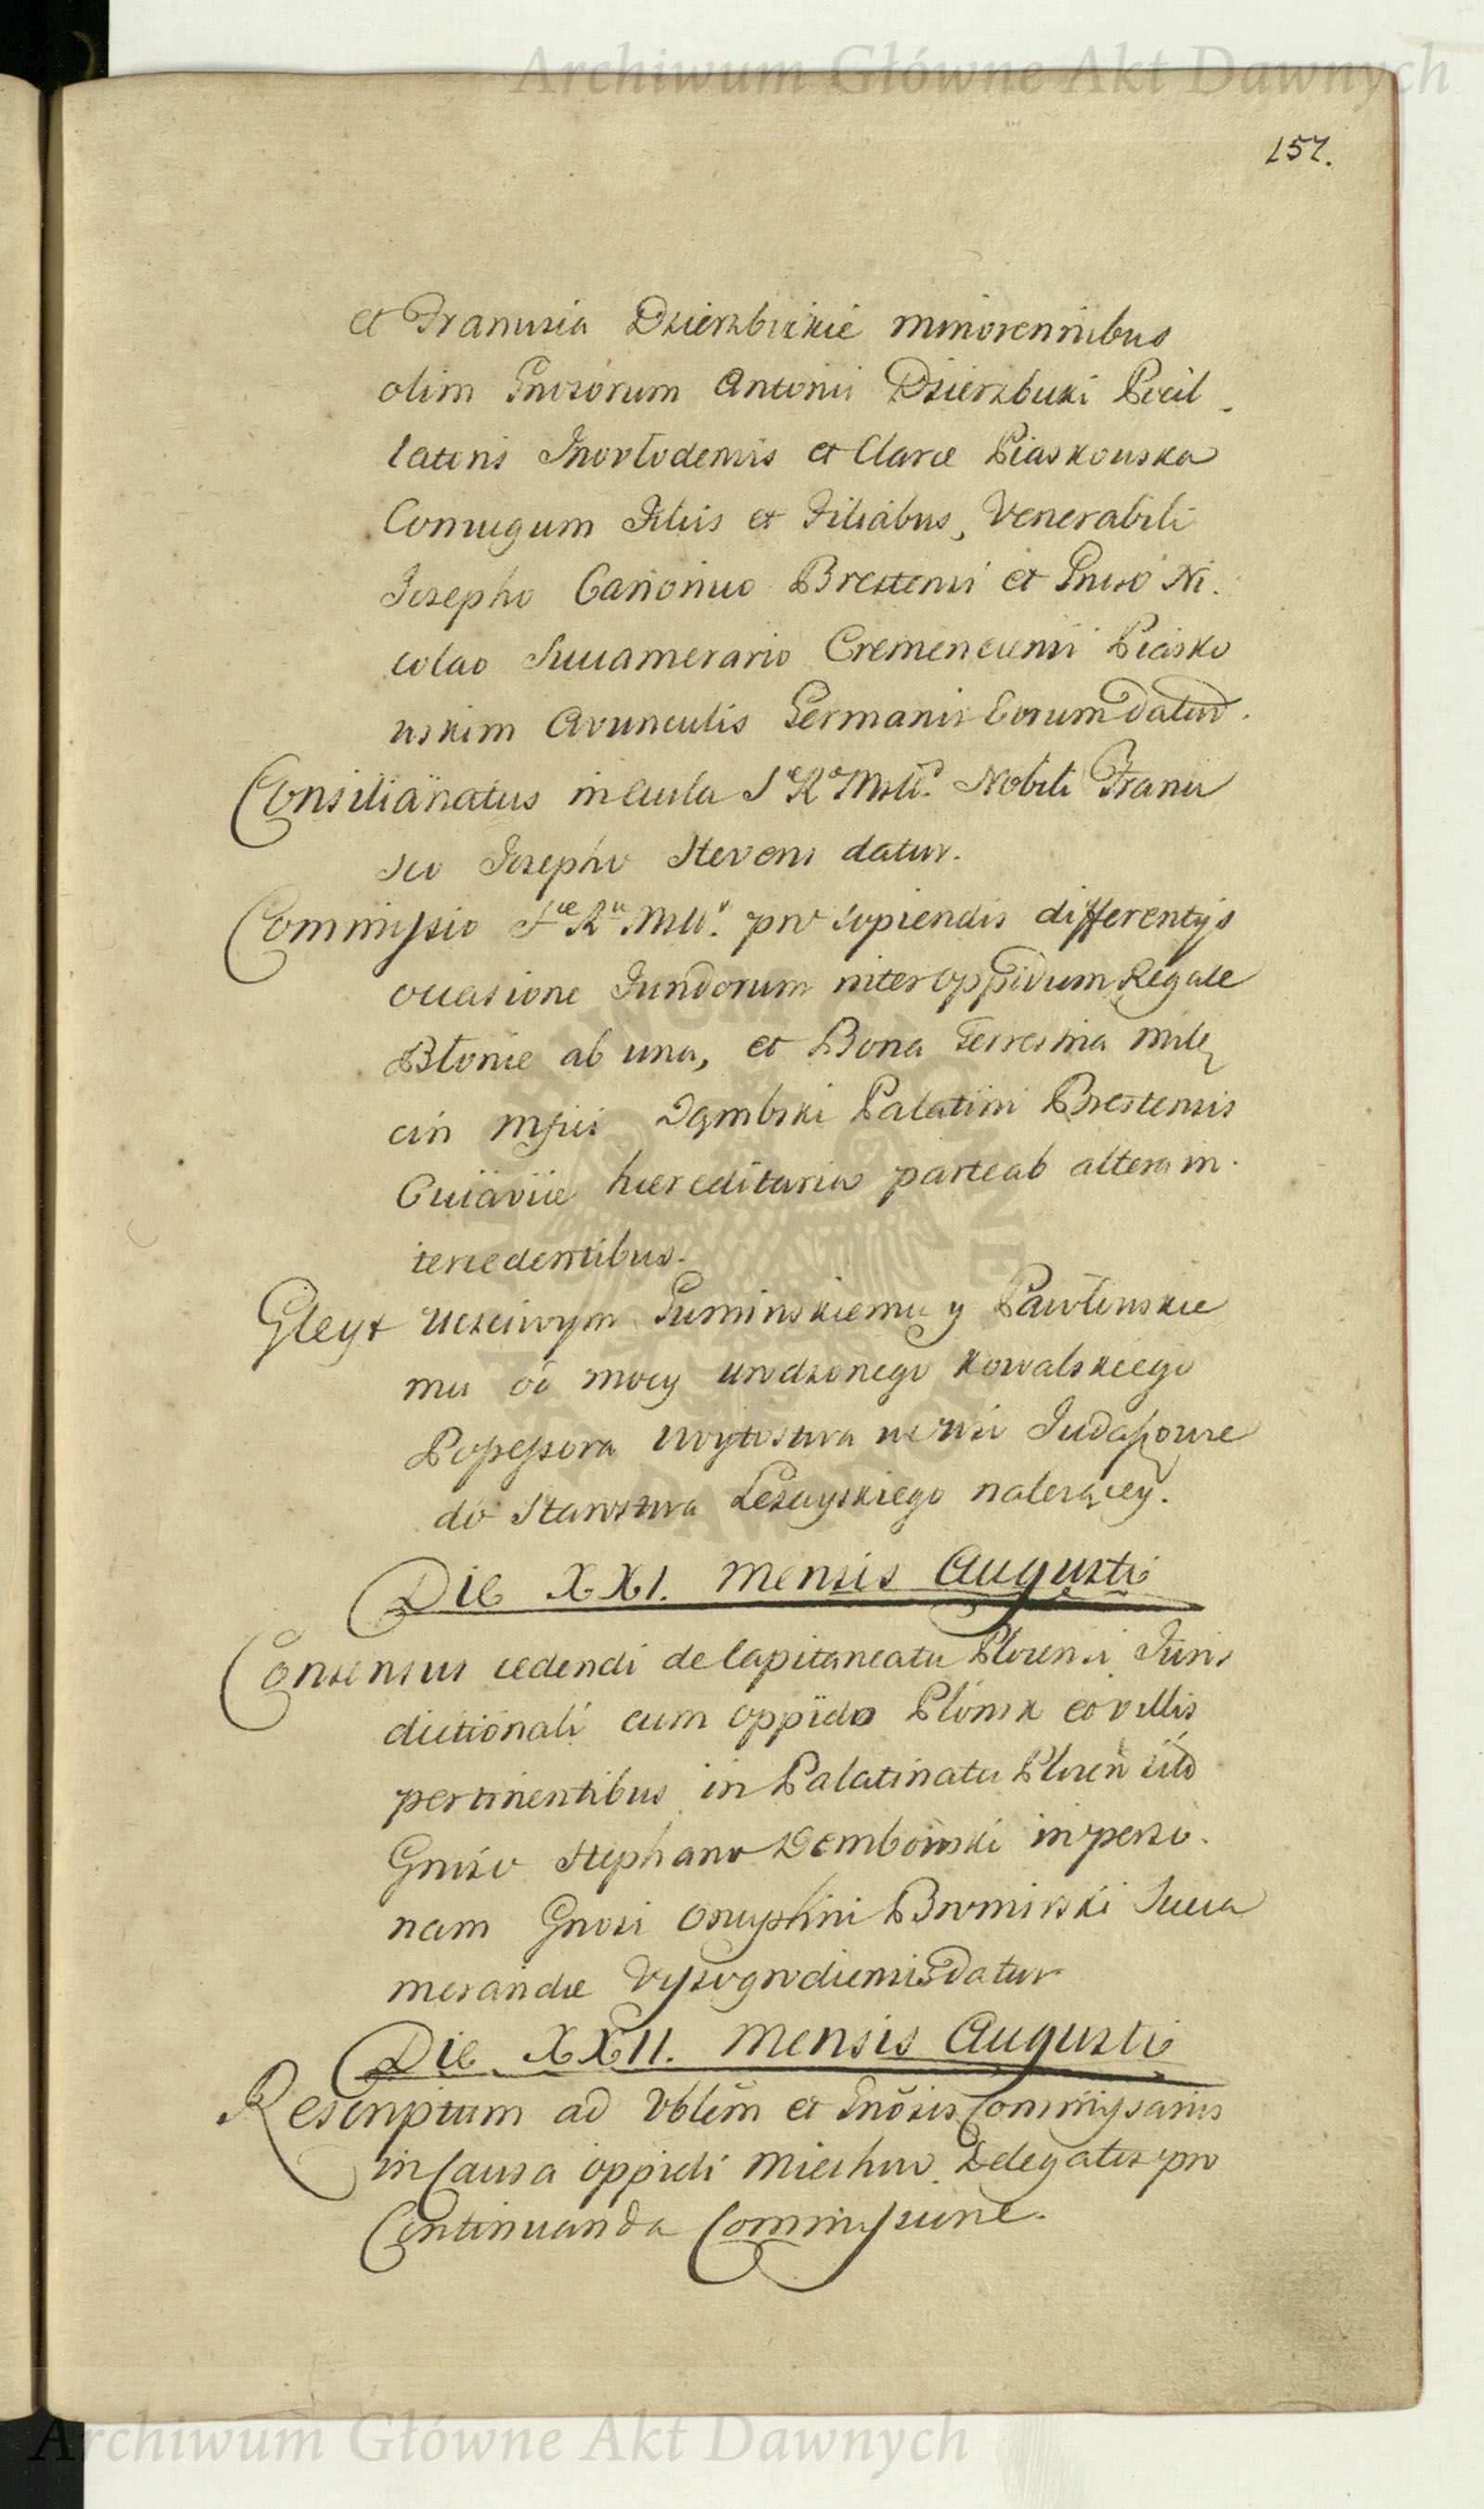 Archiwum Główne Akt Dawnych
157.
et Francisia Dzierzbickie minorennibus
olim Gnosorum Antonii Dzierzbicki Pocil-
latoris Inovlodensis et Claræ Piaskouska
Coniugum Filiis et Filiabus, Venerabili
Josepho Canonico Brestensi et Gnoso Ni-
colao Succamerario Cremenecensi Piasko
uskim Avunculis Germanis Eorum datur.
Consilianatus in Aula Sæ Ræ Mttis Nobili Franci
sco Josepho Stevens datur.
Commissio Sæ Ræ Mttis pro sopiendis differentijs
occasione Fundorum inter oppidum Regale
Błonie ab una, et Bona Terrestria Milę
cin Mfici Dąmbski Palatini Brestensis
Cuiaviæ hæreditaria parte ab altera in-
tercedentibus.
Gleyt Uczciwym Guminskiemu y Pawlinskie
mu od mocy urodzonego Kowalskiego
Possessora Woytostwa we wsi
do Starostwa Leżayskiego należącey.
Die XXI. Mensis Augusti
Consensus cedendi de Capitaneatu Plocensi Juris
dictionali cum oppido Płonsk eo villis
pertinentibus in Palatinatu Plocen sito
Gnoso Stephano Dembowski in perso-
nam Gnosi Onuphrii Bromirski Succa
merandæ Vyssogrodiensis datur
Die XXII. Mensis Augusti
Rescriptum ad Vblem et Gnosis Commissariis
in Causa oppidi Miechow Delegatis pro
Continuanda Commissione.
Archiwum Główne Akt Dawnych